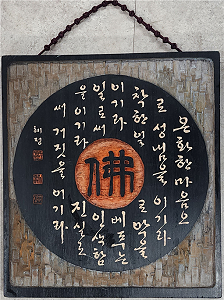 온화한 마음으
로 성냄을 이기라
착한 일 로 악을
이기라 베푸는
佛
일로써 인색함
을 이기라 진실로
써 거짓을 이기라